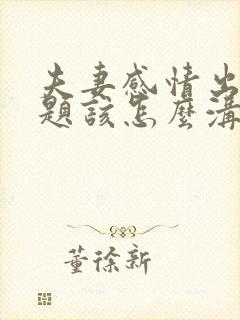 夫妻感情出
題該怎麼溝
董徐新